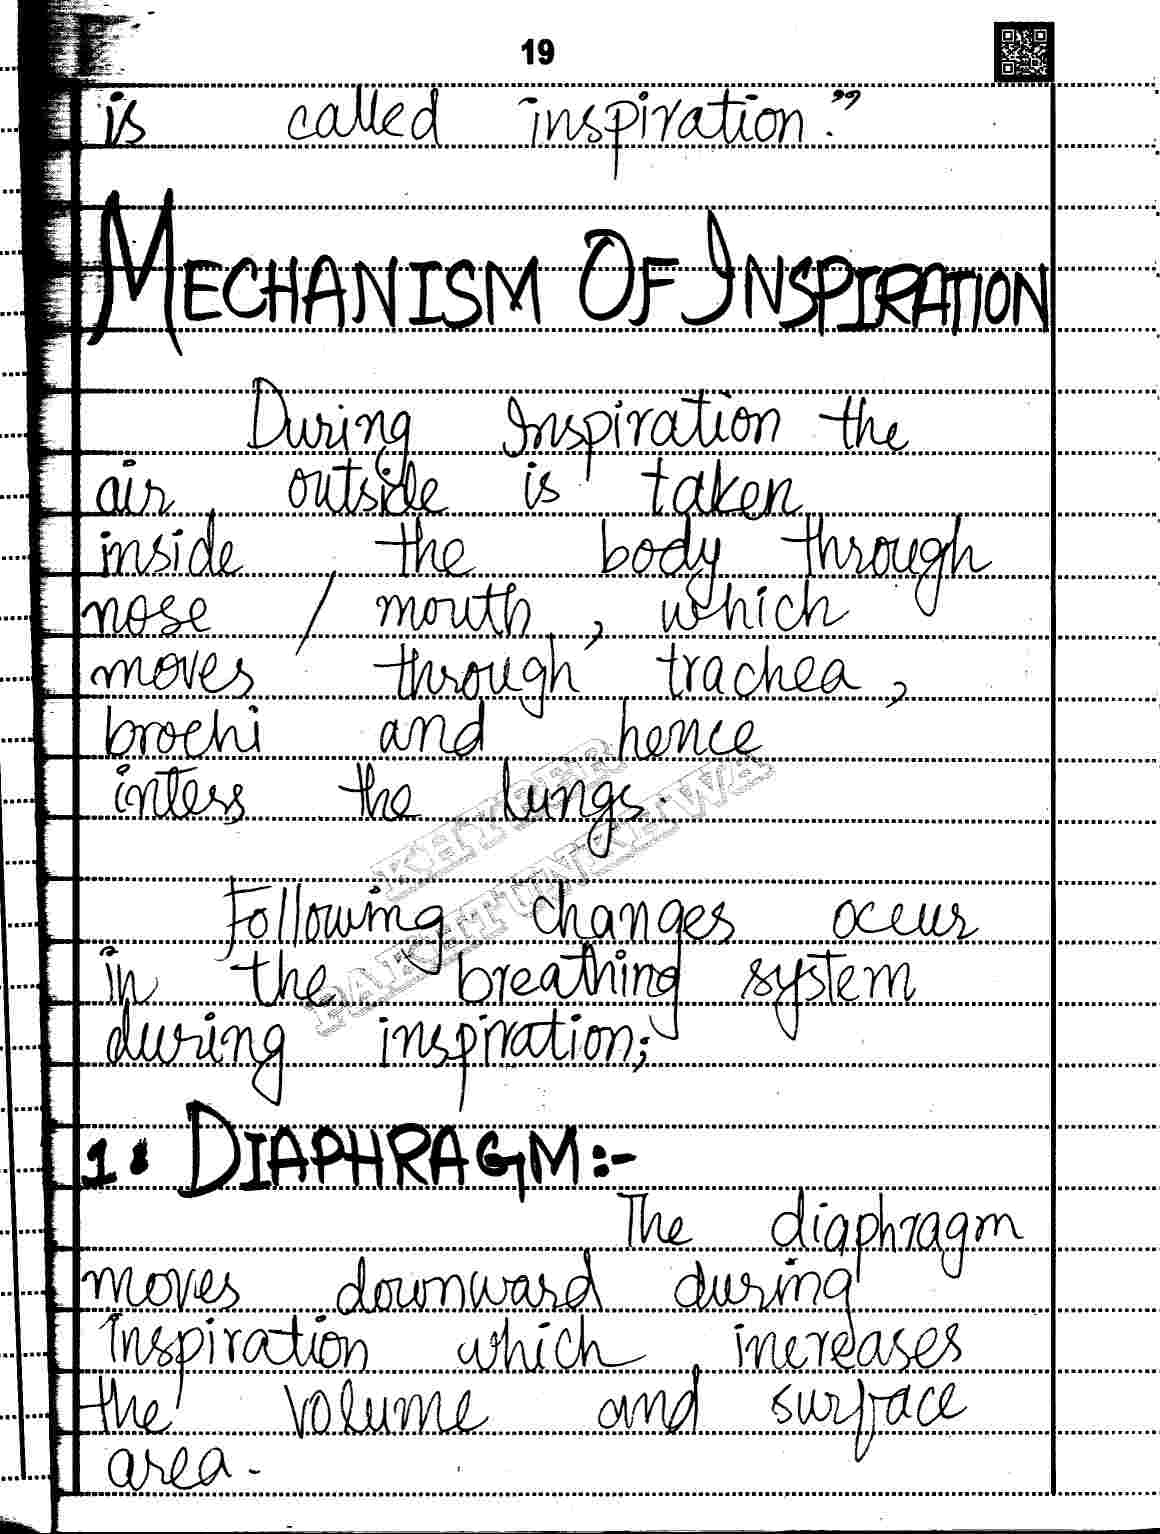 19
is called inspiration."
MECHANISM OF INSPIRATION
During Inspiration the
air outside is taken
inside the body through
nose / mouth, which
moves through trachea,
brochi and hence
inters the lungs.
KHYBER
PAKHTUNKHWA
Following changes occur
in the breathing system
during inspiration;
1. DIAPHRAGM:-
The diaphragm
moves downward during
Inspiration which increases
the volume and surface
area.